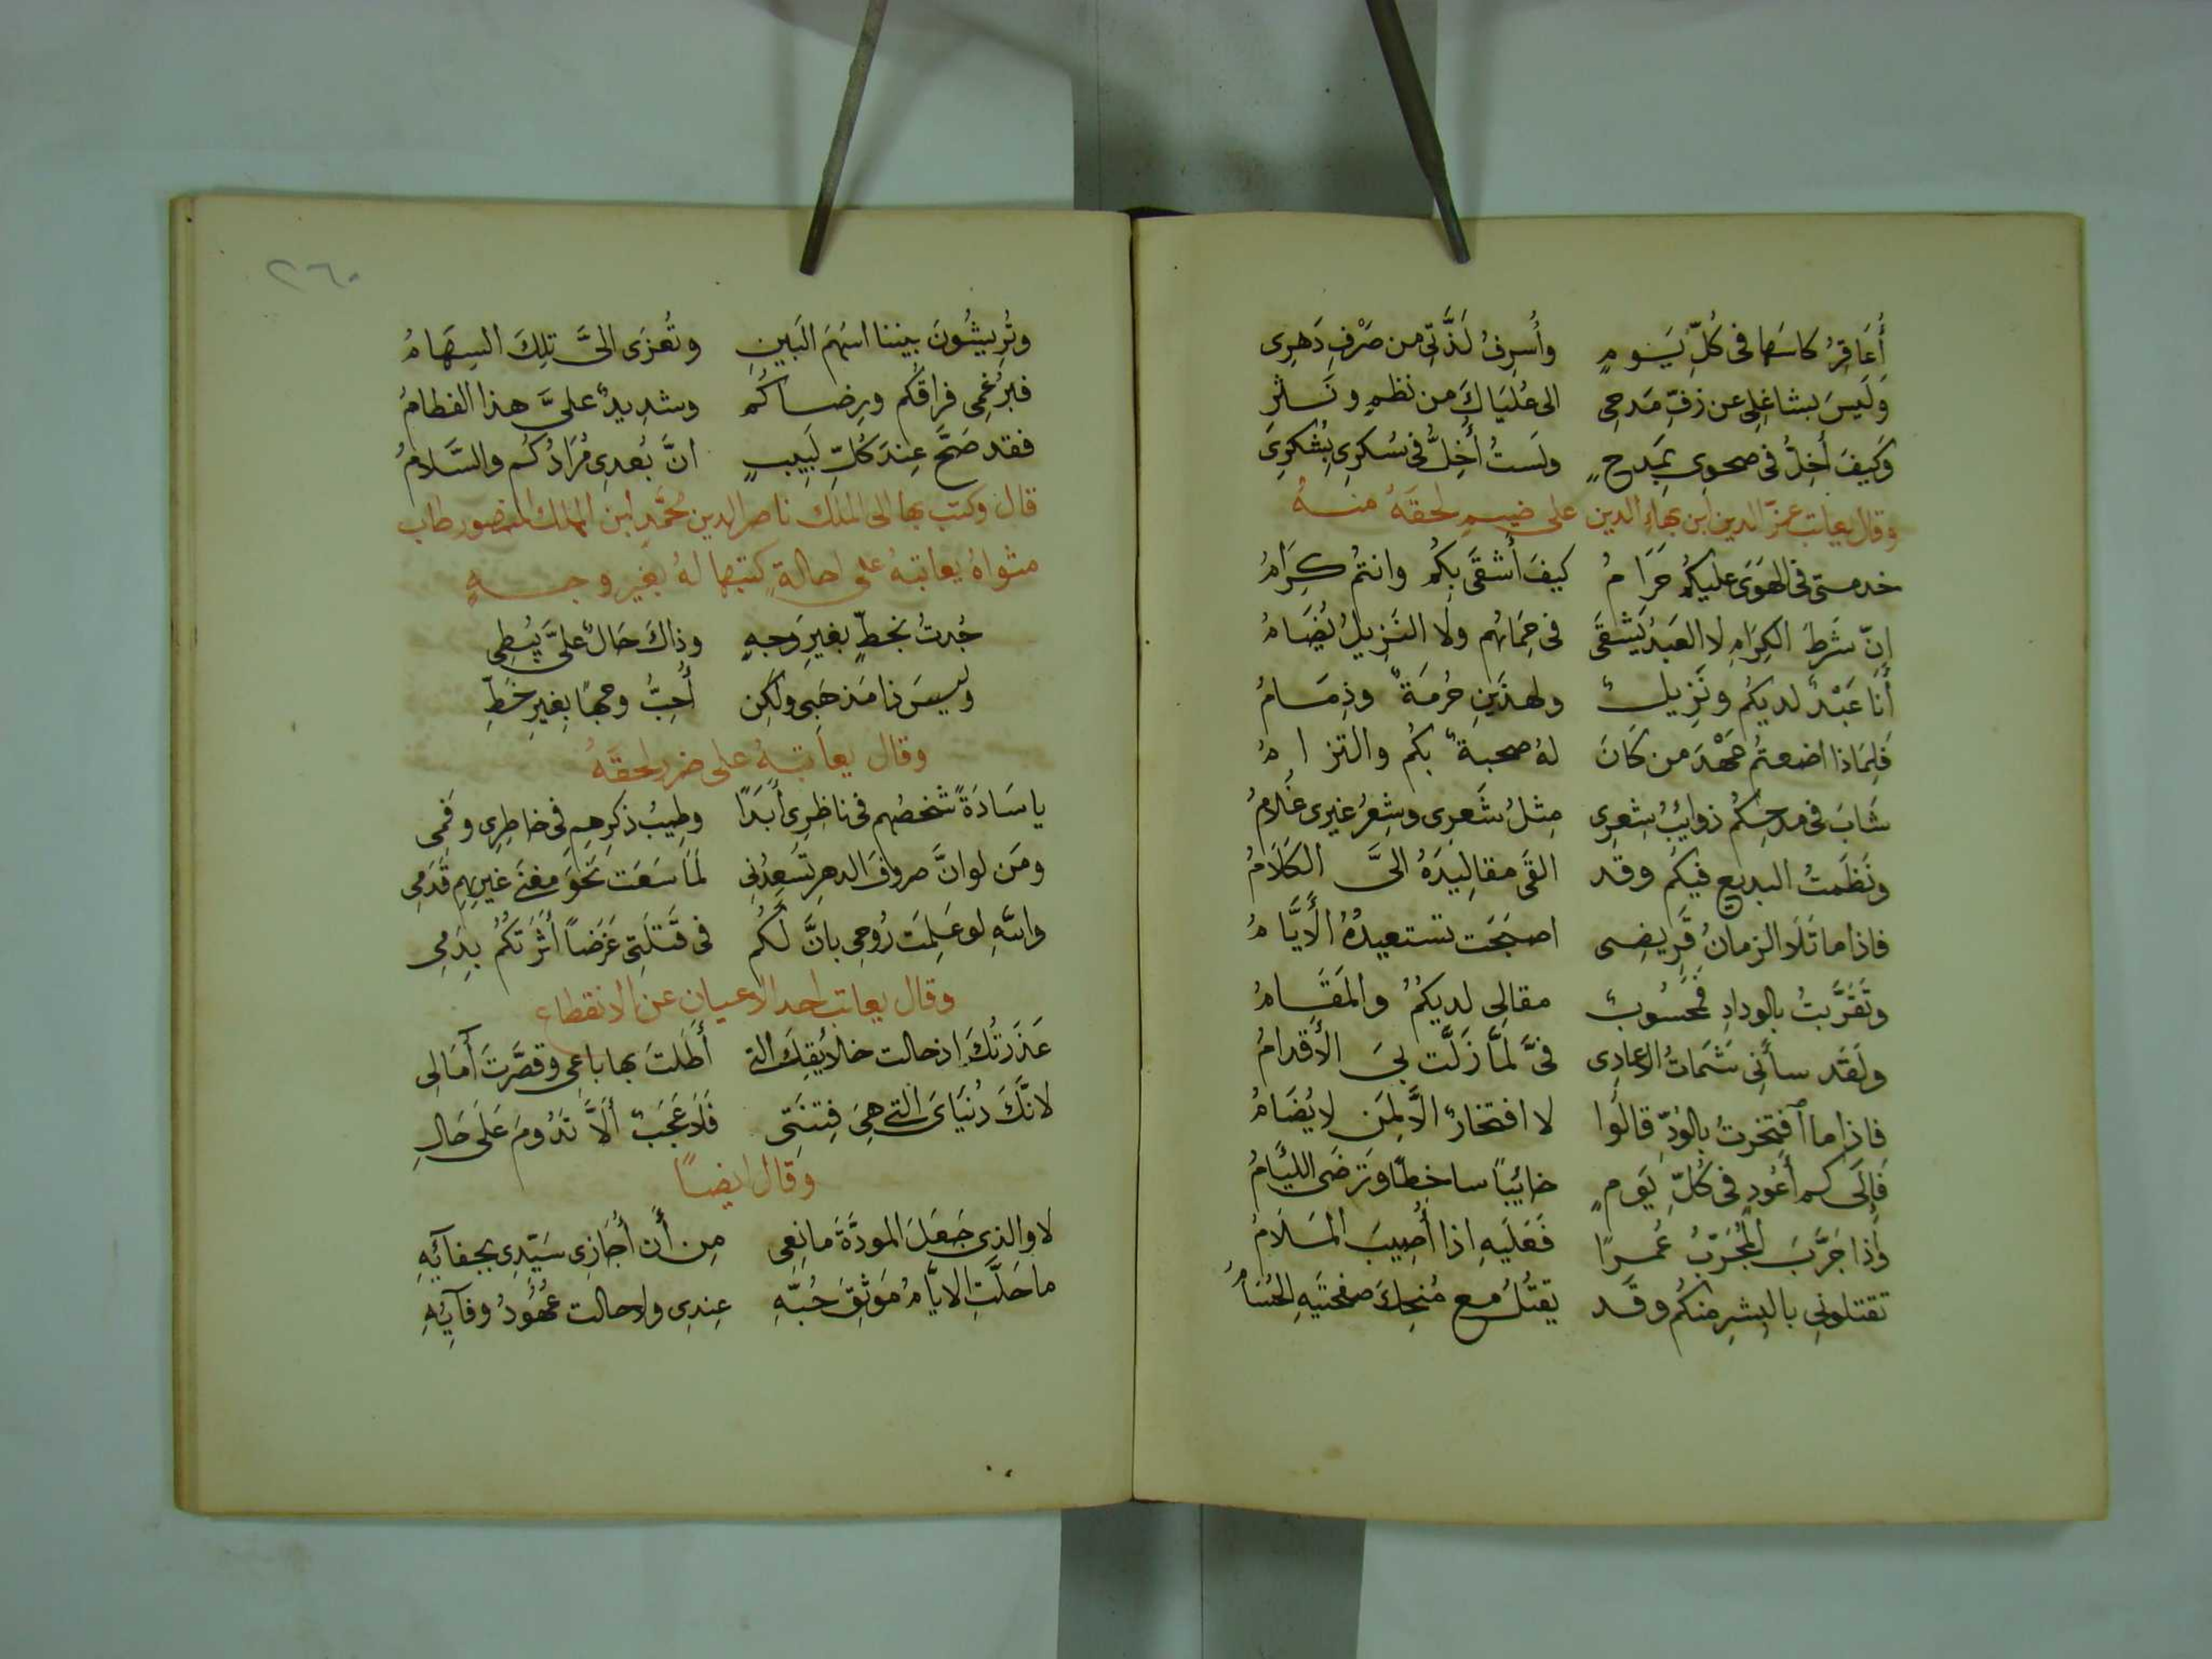 أُعَاقِرُ كاسَها فى كُلِّ يَومٍ وأُسرِفُ لَذَّتِى من صَرْفِ دَهرِى
وَلَيسَ بشاغِلِى عن زفِّ مَدحِى الى عُليَاكَ من نظمٍ ونَثرِ
وَكَيفَ أُخِلُّ فى صحوِى بِمَدحٍ ولَستُ أُخِلُّ فى سُكرِى بِشُكرِى
وقال يعاتب عزّ الدين ابن بهاء الدين على ضيمٍ لحقَهُ منهُ
خدمتى فى الهَوَى عليكُم حَرَامُ كيفَ أَشقَى بِكُم وانتُم كِرَامُ
إنّ شَرطَ الكِرَامِ لا العَبدُ يَشقَى فى حِمَاهُم ولا النَزِيلُ يُضَامُ
أَنَا عَبْدٌ لديكُم ونَزِيلٌ ولهذَينِ حُرمَةٌ وذِمَامُ
فَلِمَاذا اضعتُم عَهْدَ من كَانَ لهُ صحبةٌ بكُم والتزامُ
شَابَ فى مدحِكُم ذوايُبُ شِعرِى مِثلُ شَعرِى وشِعرُ غيرى غلامُ
ونَظَمتُ البديع فيكُم وقد القَى مقالِيدَهُ الىَّ الكَلَامُ
فاذا ما تَلَا الزمانُ قَرِيضِى اصبَحَت تستعيدُهُ الأَيَّامُ
وتَقَرَّبتُ بالودادِ فمَحسُوبٌ مقالِى لديكُمُ والمَقَامُ
ولَقَد سأَنِى شَمَاتُ الاعادِى فىَّ لَمَّا زَلَّت بىَ الأَقدامُ
فاذا ما أفتخرتُ بالوُدِّ قالُوا لا افتخارٌ الَّا لِمَن لا يُضَامُ
فَإِلَى كم أَعُود فى كُلِّ يَومٍ خايُبًا ساخِطًا وتَرضَى الليُامُ
وَاذا جَرَّبَ المُجَرّبُ عُمرًا فَعَلَيهِ اذا أُصِيبَ المَلَامُ
تقتلونى بالبِشرِ منكُم وقَد يقتُلُ مع ضَحِكَ صفحتَيهِ الحُسَامُ
٢٦٠
وتُرِيشُونَ بيننا اسهُمَ البَينِ وتُعزَى الىَّ تلِكَ السِهَامُ
فبرُغمِى فراقُكُم ورِضاكُم وشدِيدٌ علىَّ هذا الفطامُ
فقد صَحَّ عِندَ كُلِّ لَبِيبٍ انَّ بُعدِى مُرَادُكُم والسَّلامُ
قال وكتب بها الى الملك ناصر الدين محمَّد ابن الملك المنصور طاب
مثواهُ يعاتبهُ على احالةٍ كتبها لهُ بغير وجهٍ
جُدتُ بخطٍّ بغيرِ وَجهٍ وذاكَ حَالٌ علىَّ يُبطِى
وليسَ ذا مَذهَبى ولكِن أُحِبُّ وجهًا بِغيرِ خَطِّ
وقال يعاتبهُ على ضررٍ لحقَهُ
يا سَادَةً شخصُهم فى ناظِرِى أَبَدًا وطِيبُ ذكرِهِم فى خاطِرِى وفَمِى
ومَن لو انَّ صروفَ الدهرِ تسَعِدُنِى لَمَا سَعَت نَحوَ مغنَى غيرِهِم قَدَمِى
واللهِ لو عَلِمَت رُوحِى بانَّ لَكُم فى قَتلَتِى غَرَضاً أثَرتكُم بِدَمِى
وقال يعاتب احد الاعيان عن الانقطاع
عَذَرتُكَ اذ حالت خلايُقِكَ التى أَطَلتَ بها باعِى وقصَّرتَ أَمَالِى
لانَّكَ دُنيَاىَ التى هِىَ فِتنَتِى فَلَا عَجَبٌ أَلَّا تَدُومَ عَلَى حَالِ
وقال ايضاً
لا والذِى جَعَلَ المودَّةَ مانِعِى مِن أَن أُجَازِى سَيّدِى بجفآئِهِ
ما حَلَّتِ الايَّامُ مَوثِقَ حُبِّهِ عِندِى ولا حالت عُهُودُ وفآيُهِ